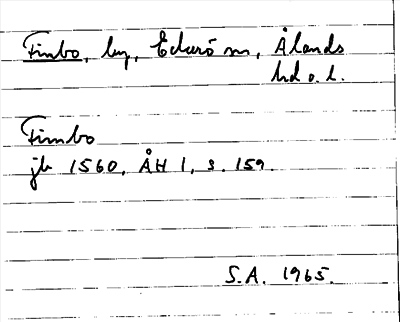 Finbo, by, Eckerö sn, Ålands
hd o. l.
Fimbo
jb 1560, ÅH 1, s. 159.
S.A. 1965.